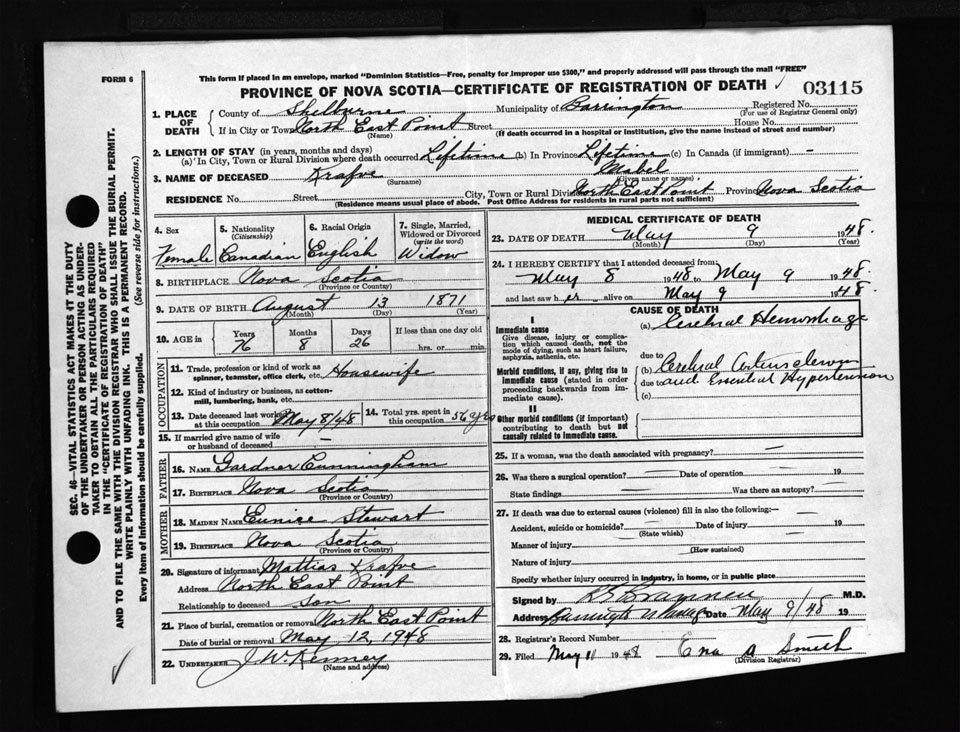 FORM 6
This form if placed in an envelope, marked "Dominion Statistics—Free, penalty for improper use $300," and properly addressed will pass through the mail "FREE"
PROVINCE OF NOVA SCOTIA—CERTIFICATE OF REGISTRATION OF DEATH 03115
1. PLACE OF DEATH County of Shelburne Municipality of Barrington Registered No.
(For use of Registrar General only)
If in City or Town North East Point Street House No.
(Name) (If death occurred in a hospital or institution, give the name instead of street and number)
2. LENGTH OF STAY (in years, months and days)
(a) In City, Town or Rural Division where death occurred Lifetime (b) In Province Lifetime (c) In Canada (if immigrant) —
3. NAME OF DECEASED Krafve Mabel
(Surname) (Given name or names)
RESIDENCE No. Street City, Town or Rural Division North East Point Province Nova Scotia
(Residence means usual place of abode. Post Office Address for residents in rural parts not sufficient)
4. Sex 5. Nationality (Citizenship) 6. Racial Origin 7. Single, Married, Widowed or Divorced (write the word)
Female Canadian English Widow
8. BIRTHPLACE Nova Scotia
(Province or Country)
9. DATE OF BIRTH August 13 1871
(Month) (Day) (Year)
10. AGE in Years Months Days If less than one day old
76 8 26 hrs. or min.
OCCUPATION
11. Trade, profession or kind of work as spinner, teamster, office clerk, etc. Housewife
12. Kind of industry or business, as cotten-mill, lumbering, bank, etc.
13. Date deceased last worked at this occupation May 8/48 14. Total yrs. spent in this occupation 56 yrs
15. If married give name of wife or husband of deceased —
FATHER
16. NAME Gardner Cunningham
17. BIRTHPLACE Nova Scotia
(Province or Country)
MOTHER
18. MAIDEN NAME Eunice Stewart
19. BIRTHPLACE Nova Scotia
(Province or Country)
20. Signature of informant Mattias Krafve
Address North East Point
Relationship to deceased son
21. Place of burial, cremation or removal North East Point
Date of burial or removal May 12, 1948
22. UNDERTAKER J. W. Kenney
(Name and address)
MEDICAL CERTIFICATE OF DEATH
23. DATE OF DEATH May 9 1948.
(Month) (Day) (Year)
24. I HEREBY CERTIFY that I attended deceased from:
May 8 1948 to May 9 1948.
and last saw her alive on May 9 1948.
CAUSE OF DEATH
I
Immediate cause
Give disease, injury or complication which caused death, not the mode of dying, such as heart failure, asphyxia, asthenia, etc.
(a) Cerebral Hemorrhage
due to
Morbid conditions, if any, giving rise to immediate cause (stated in order proceeding backwards from immediate cause).
(b) Cerebral
due to and Essential Hypertension
(c)
II
Other morbid conditions (if important) contributing to death but not causally related to immediate cause.
25. If a woman, was the death associated with pregnancy? —
26. Was there a surgical operation? — Date of operation — 19
State findings — Was there an autopsy? —
27. If death was due to external causes (violence) fill in also the following:—
Accident, suicide or homicide? Date of injury — 19
(State which)
Manner of injury
(How sustained)
Nature of injury
Specify whether injury occurred in industry, in home, or in public place
Signed by M.D.
Address Date May 9/48 19
28. Registrar's Record Number
29. Filed May 11 1948 Ena A Smith
(Division Registrar)
SEC. 46—VITAL STATISTICS ACT MAKES IT THE DUTY
OF THE UNDERTAKER OR PERSON ACTING AS UNDERTAKER TO OBTAIN ALL THE PARTICULARS REQUIRED
IN THE "CERTIFICATE OF REGISTRATION OF DEATH"
AND TO FILE THE SAME WITH THE DIVISION REGISTRAR WHO SHALL ISSUE THE BURIAL PERMIT.
WRITE PLAINLY WITH UNFADING INK. THIS IS A PERMANENT RECORD.
Every item of information should be carefully supplied. (See reverse side for instructions.)